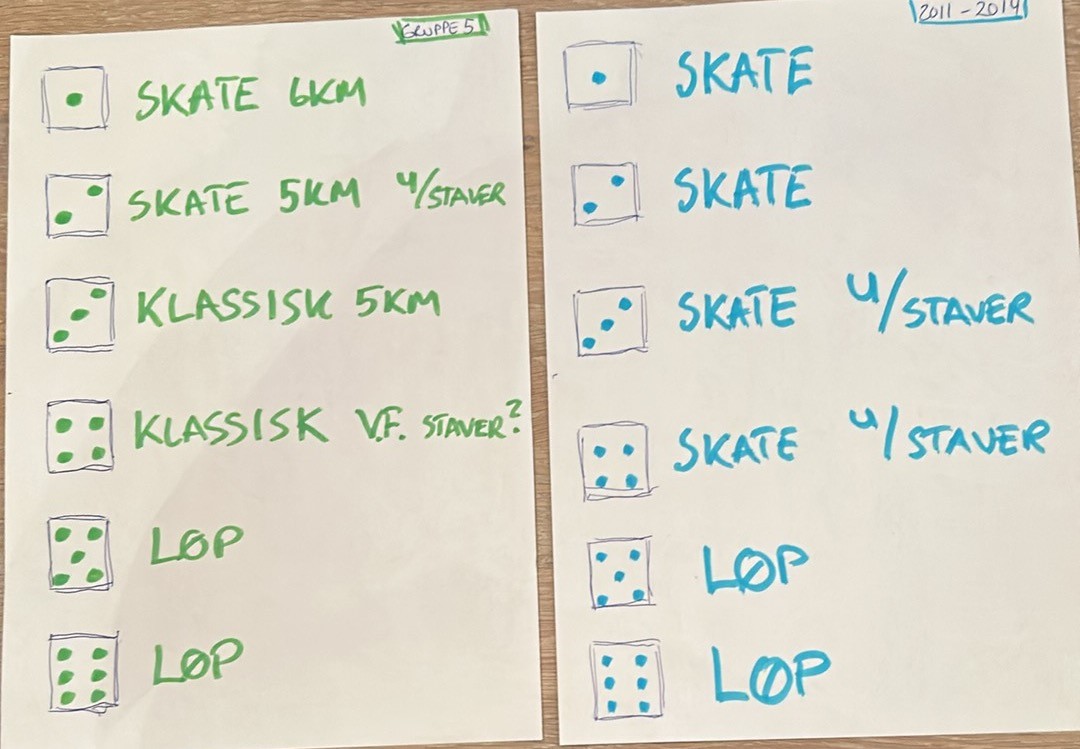 GRUPPE 5
SKATE 6KM
SKATE 5KM U/STAVER
KLASSISK 5KM
KLASSISK V.F. STAVER?
LØP
LØP
2011-2014
SKATE
SKATE
SKATE U/STAVER
SKATE U/STAVER
LØP
LØP